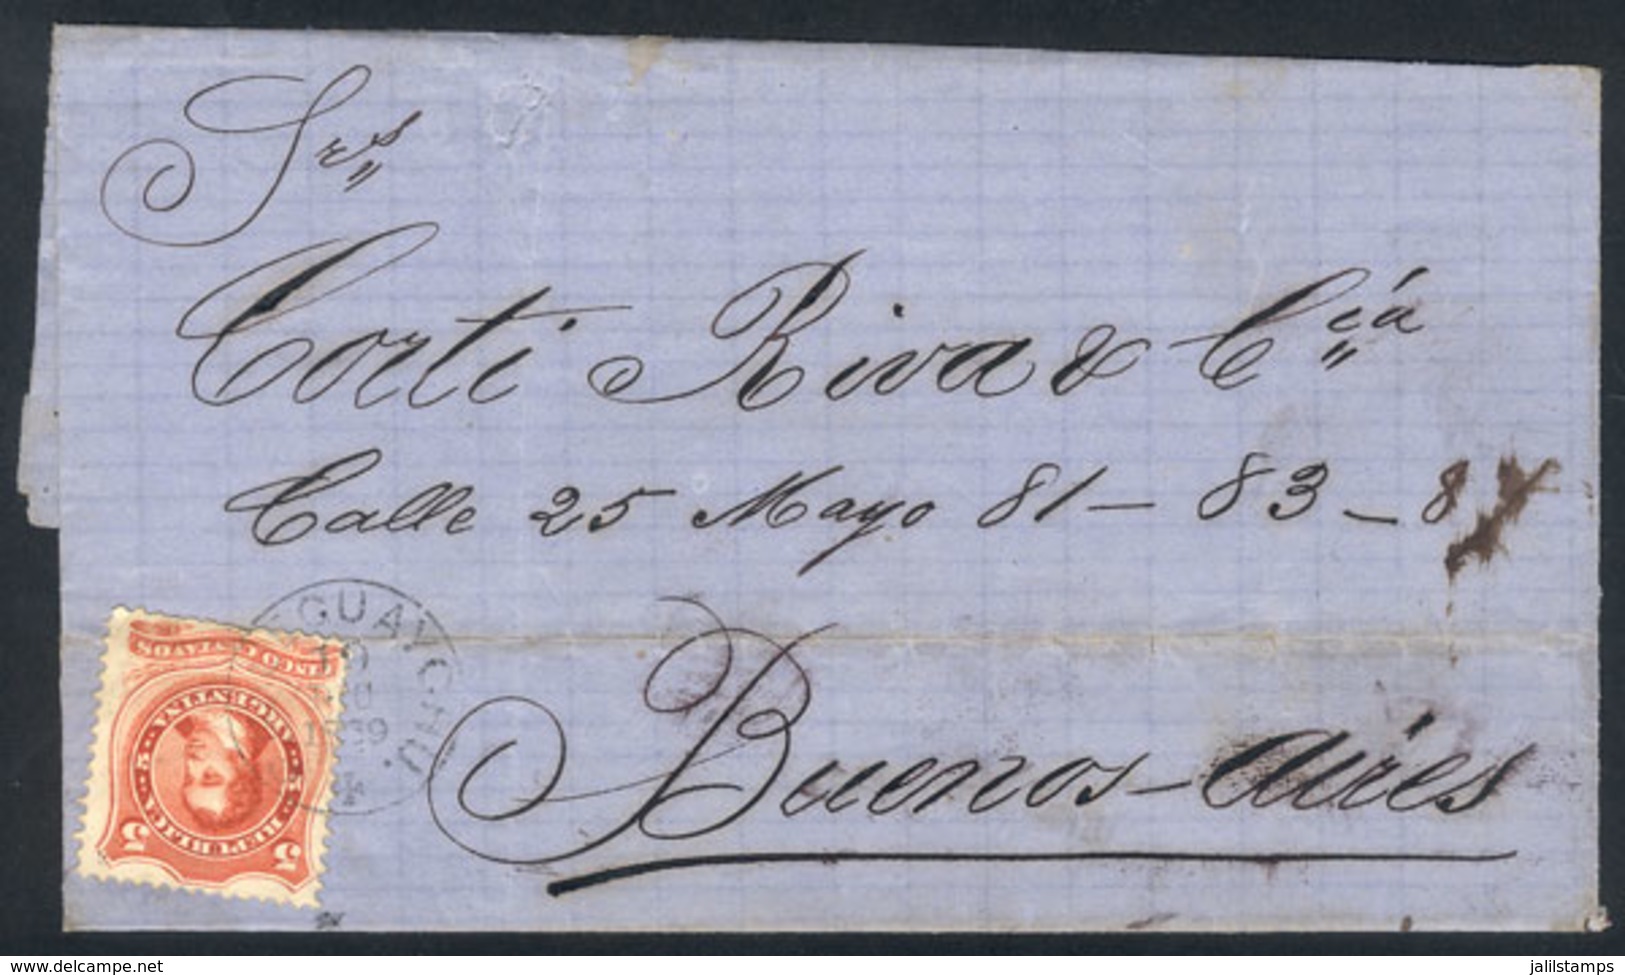 Sres
Corti Riva & Cía
Calle 25 Mayo 81 – 83 – 87
Buenos-Aires
GUAYCHU.
19
CINCO CENTAVOS
REPUBLICA ARGENTINA
5 5
5 5
delcampe.net
jalilstamps